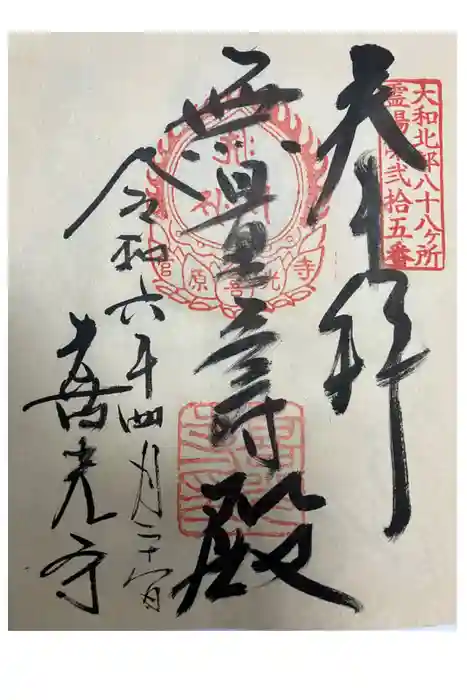 大和北部八十八ヶ所
霊場第弐拾五番
奉拝
無量壽殿
菅原喜光寺
令和六年四月二十八日
喜光寺